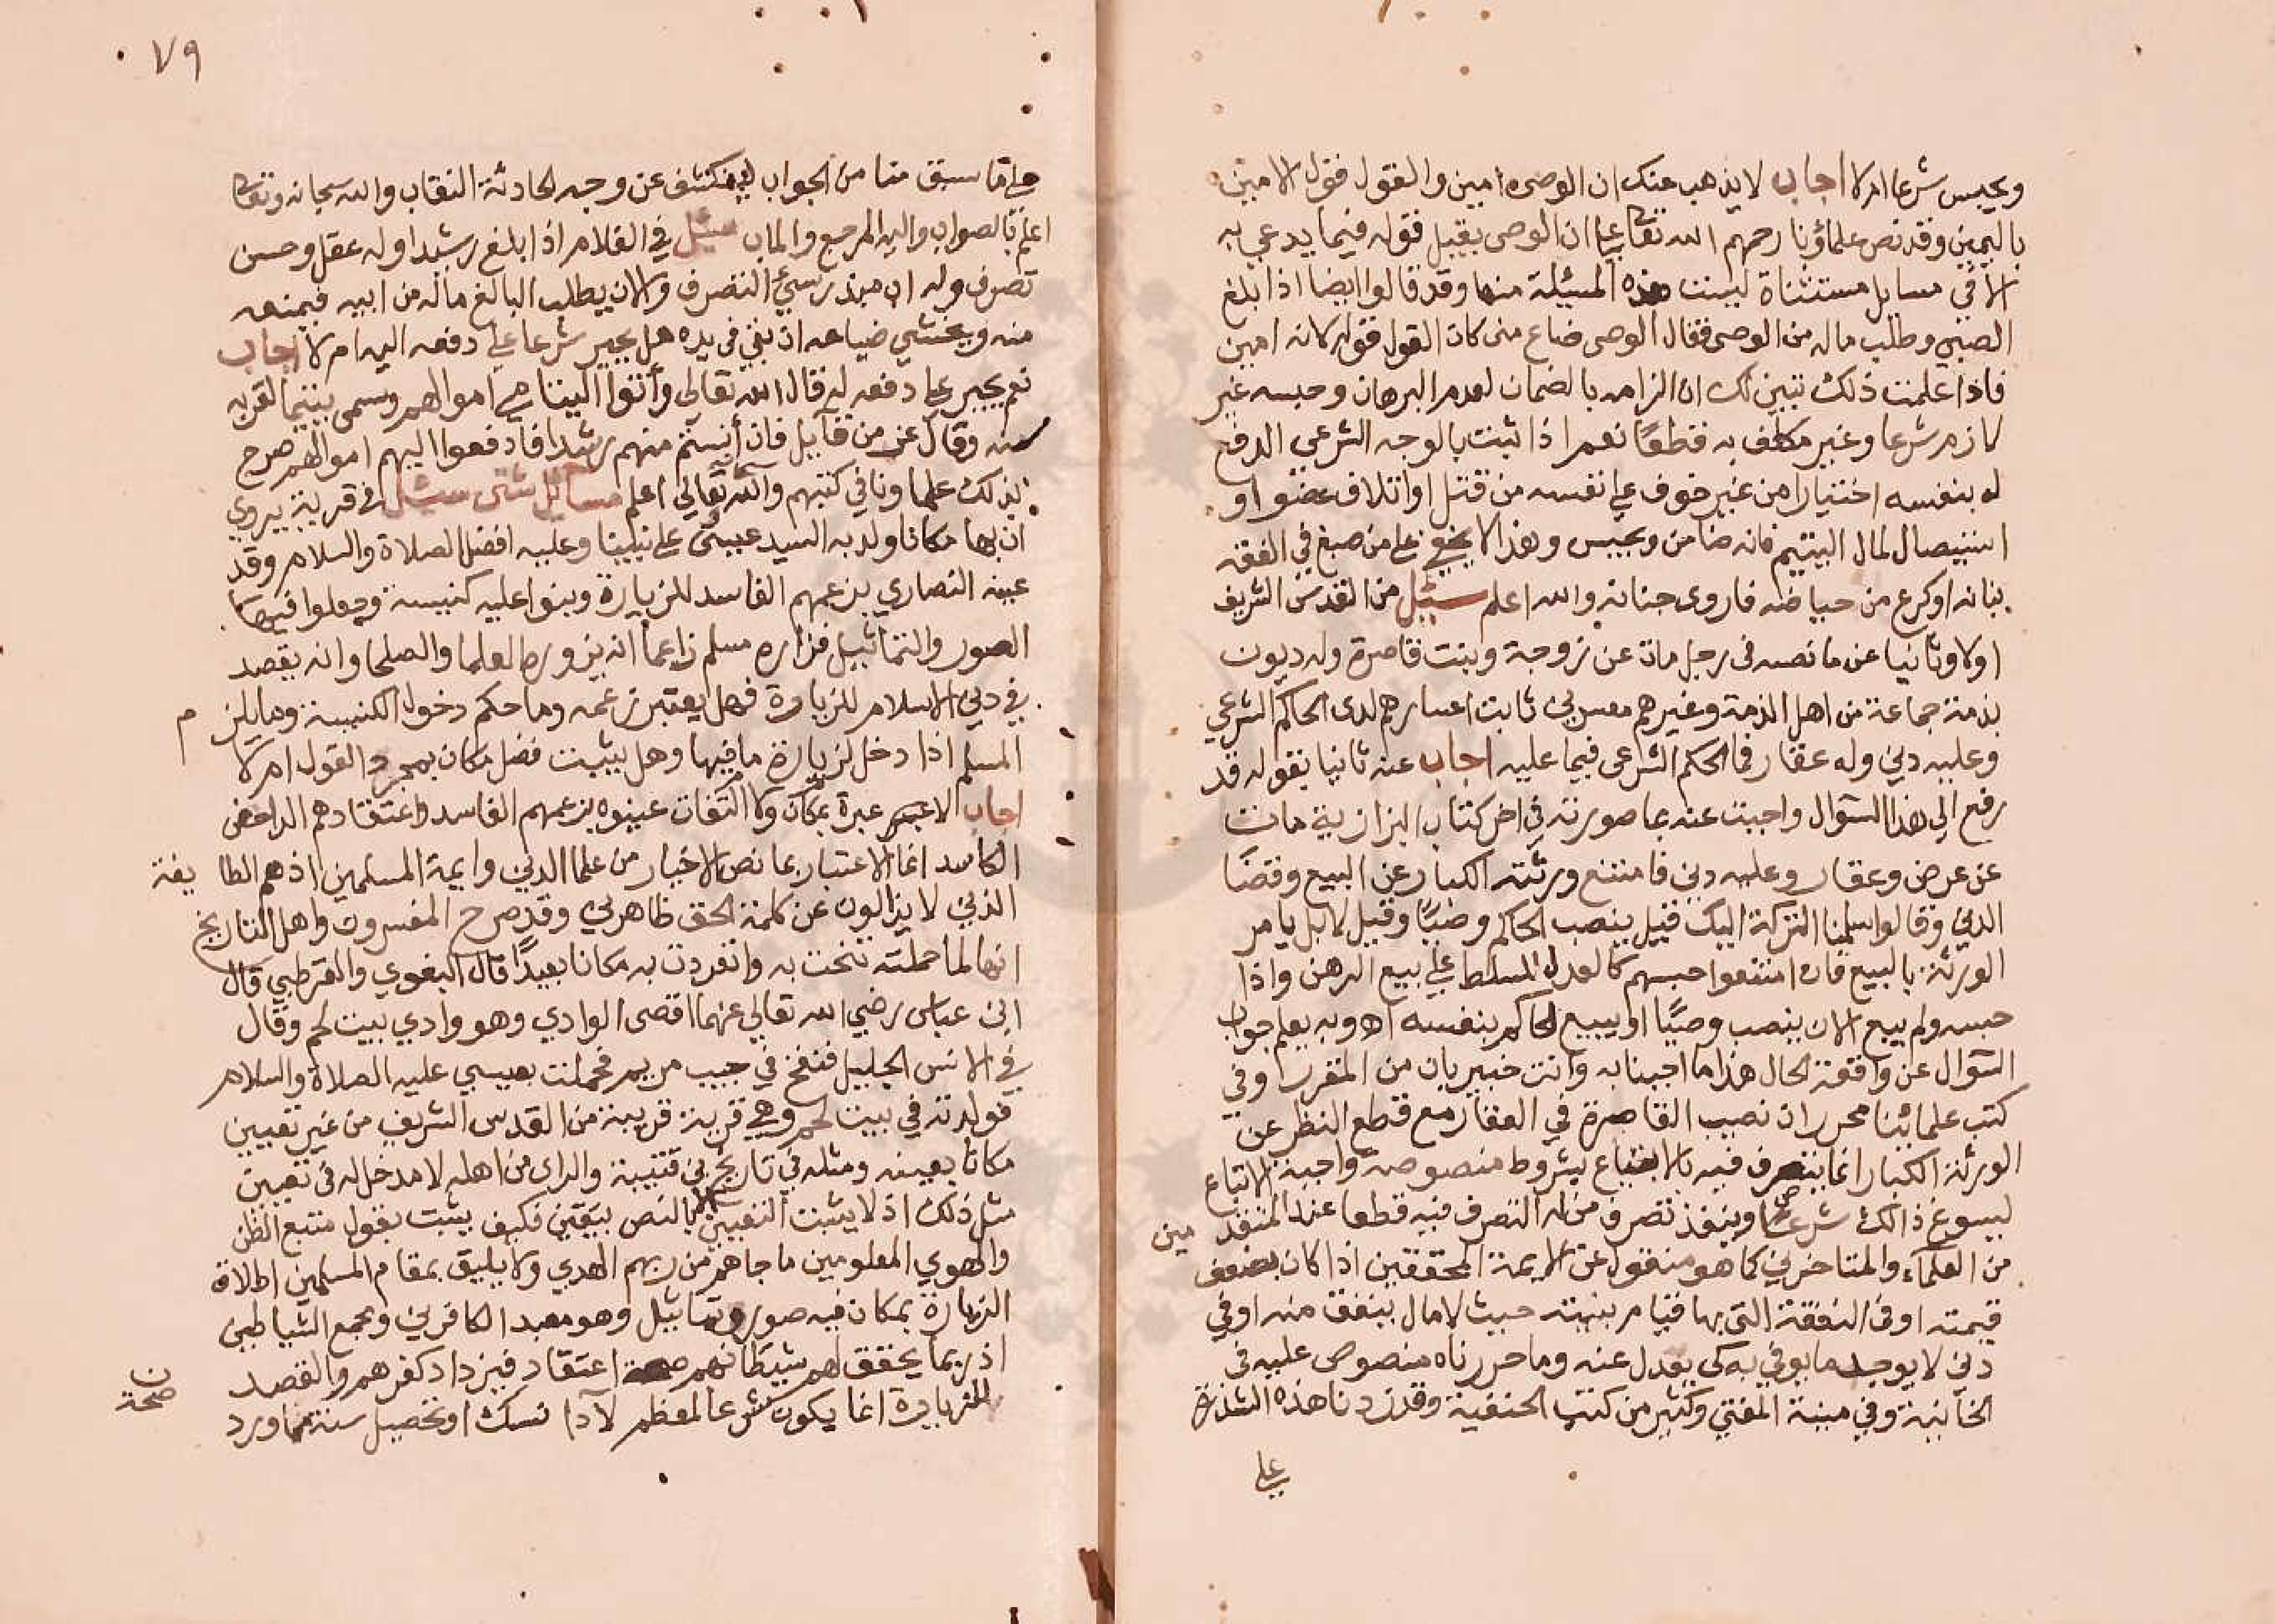 ويحبس شرعا ام لا اجاب لا يذهب عنك ان الوصي امين والقول قول الامين
باليمين وقد نص علماؤنا رحمهم الله تعالى على ان الوصي يقبل قوله فيما يدعي به
الا في مسايل مستثناة ليست هذه المسئلة منها وقد قالوا ايضا اذا بلغ
الصبي وطلب ماله من الوصي فقال الوصي ضاع مني كان القول قوله لانه امين
فاذا علمت ذلك تبين لك ان الزامه بالضمان لعدم البرهان وحبسه غير
لازم شرعا وغير مكلف به قطعًا نعم اذا ثبت بالوجه الشرعي الدفع
له بنفسه اختيارا من غير خوف على نفسه من قتل او اتلاف عضو او
استيصال لمال اليتيم فانه ضامن ويحبس وهذا لا يخفى على من صبغ في الفقه
بنانه او كرع من حياضه فاروى جنانه والله اعلم سئل من القدس الشريف
اولا وثانيا عن ما نصه في رجل مات عن زوجة وبنت قاصرة وله ديون
بذمة جماعة من اهل الذمة وغيرهم معسرين ثابت اعسارهم لدى الحاكم الشرعي
وعليه دين وله عقار فما الحكم الشرعي فيما عليه اجاب عنه ثانيا بقوله قد
رفع الي هذا السؤال واجبت عنه بما صورته في اخر كتاب البزازية مات
عن عرض وعقار وعليه دين فامتنع ورثته الكبار عن البيع وقضا
الدين وقالوا سلمنا التركة اليك قيل ينصب الحاكم وصيًا وقيل لا بل يامر
الورثة بالبيع فان امتنعوا حبسهم كالعدل المسلط على بيع الرهن واذا
حبسه ولم يبع الان ينصب وصيًا او يبيع الحاكم بنفسه اه وبه يعلم جواب
السؤال عن واقعة الحال هذا ما اجبنا به وانت خبير بان من المقرر وفي
كتب علمائنا محرر ان نصيب القاصرة في العقار مع قطع النظر عن
الورثة الكبار انما يتصرف فيه بالابتياع بشروط منصوصة واجبة الاتباع
ليسوغ ذالك شرعا وينفذ تصرف من له التصرف فيه قطعا عند المتقدمين
من العلماء والمتاخرين كما هو منقول عن الايمة المحققين اذا كان بضعف
قيمته او في النفقة التي بها قيام بنيته حيث لا مال ينفق منه او في
دين لا يوجد ما يوفي به كي يعدل عنه وما حررناه منصوص عليه في
الخانية وفي منية المفتي وكثير من كتب الحنفية وقد زدنا هذه الشذرة
على
٧٩
على ما سبق منا من الجواب لينكشف عن وجه الحادثة النقاب والله سبحانه وتعالى
اعلم بالصواب واليه المرجع والماب سئل في الغلام اذا بلغ رشيدا وله عقل وحسن
تصرف وله اب مبذر سيئ التصرف والان يطلب البالغ ماله من ابيه فيمنعه
منه ويخشي ضياعه ان بقي في يده هل يجبر شرعا على دفعه اليه ام لا اجاب
نعم يجبر على دفعه له قال الله تعالى وأتوا اليتامى اموالهم وسمي يتيما لقربه
منه وقال عز من قآيل فان أنستم منهم رشدا فادفعوا اليهم اموالهم صرح
بذلك علماونا في كتبهم والله سبحانه تعالي اعلم مسائل شتى سئل في قرية يروي
ان بها مكانا ولد به السيد عيسى على نبينا وعليه افضل الصلاة والسلام وقد
عينه النصاري بزعمهم الفاسد للزيارة وبنوا عليه كنيسة وجعلوا فيها
الصور والتماثيل فزاره مسلم زاعما انه يزوره العلما والصلحا وانه يقصد
في دين الاسلام للزيارة فهل يعتبر زعمه وما حكم دخول الكنيسة وما يلزم
المسلم اذا دخل لزيارة ما فيها وهل يثبت فضل مكان بمجرد القول ام لا
اجاب لا عبرة بمكان ولا التفات عينوه بزعمهم الفاسد واعتقادهم الداحض
الكاسد انما الاعتبار بما نص الاخيار من علما الدين وايمة المسلمين اذ هم الطايفة
الذين لا يزالون عن كلمة الحق ظاهرين وقد صرح المفسرون واهل التاريخ
انها لما حملته تنحت به وانفردت به مكانا بعيدًا قال البغوي والقرطبي قال
ابن عباس رضي الله تعالي عنهما اقصى الوادي وهو وادي بيت لحم وقال
في الانس الجليل فنفخ في جيب مريم فحملت بعيسي عليه الصلاة والسلام
فولدته في بيت لحم وهي قرية قريبة من القدس الشريف من غير تعيين
مكانا بعينه ومثله في تاريخ بن قتيبة والراي من اهله لا مدخل له في تعيين
مثل ذلك اذ لا يثبت التعيين الا بالنص بيقين فكيف يثبت بقول متبع الظن
والهوي المعلومين ما جاهم من ربهم الهدي ولا يليق بمقام المسلمين اطلاق
الزيارة بمكان فيه صور وتماثيل وهو معبد الكافرين ومجمع الشياطين
اذ ربما يحقق لهم شيطانهم صحة اعتقاد فيزداد كفرهم والقصد
صحة ن
للزيارة انما يكون شرعا لمعظم لآدا نسك او تحصيل سنة مما ورد